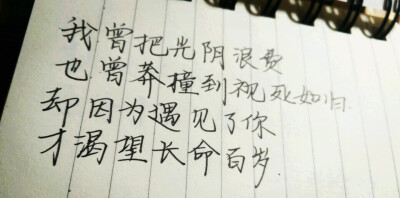 我曾把光阴浪费
也曾莽撞到视死如归
却因为遇见了你
才渴望长命百岁.